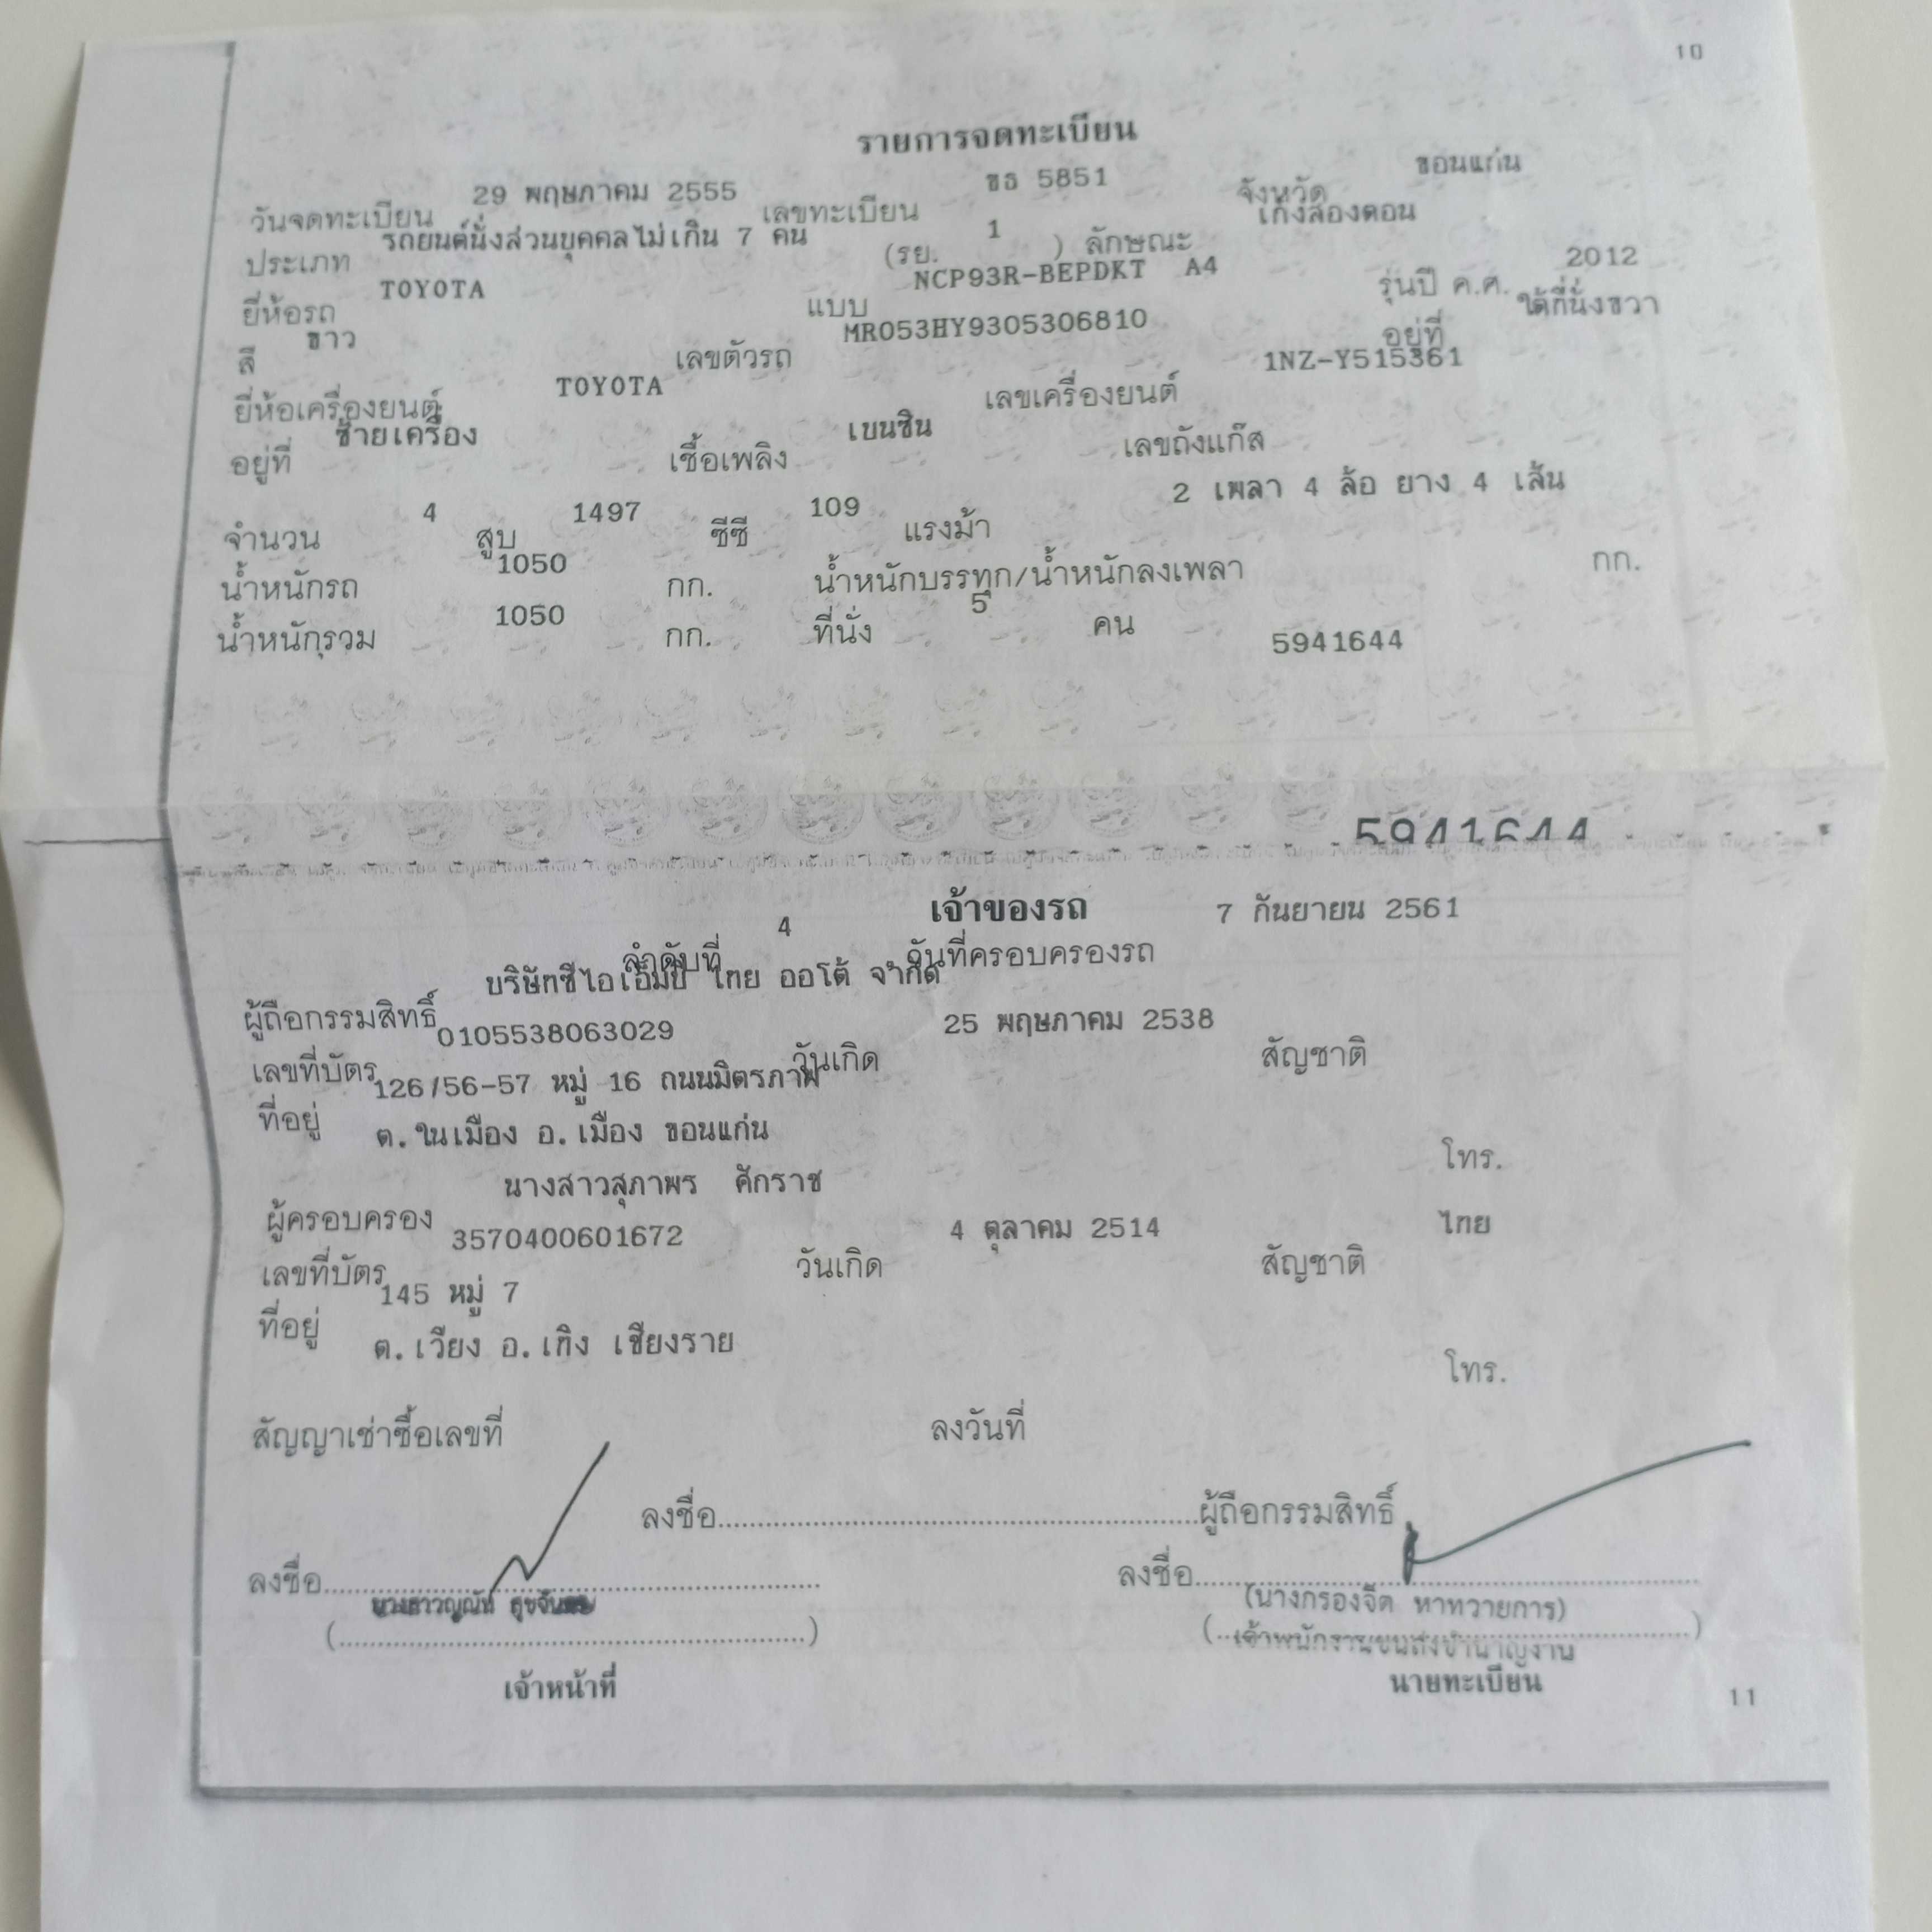 10
รายการจดทะเบียน
วันจดทะเบียน 29 พฤษภาคม 2555 เลขทะเบียน ขธ 5851 จังหวัด ขอนแก่น
ประเภท รถยนต์นั่งส่วนบุคคลไม่เกิน 7 คน (รย. 1 ) ลักษณะ เก๋งสองตอน
ยี่ห้อรถ TOYOTA แบบ NCP93R-BEPDKT A4 รุ่นปี ค.ศ. 2012
สี ขาว เลขตัวรถ MR053HY9305306810 อยู่ที่ ใต้ที่นั่งขวา
ยี่ห้อเครื่องยนต์ TOYOTA เลขเครื่องยนต์ 1NZ-Y515361
อยู่ที่ ซ้ายเครื่อง เชื้อเพลิง เบนซิน เลขถังแก๊ส
จำนวน 4 สูบ 1497 ซีซี 109 แรงม้า 2 เพลา 4 ล้อ ยาง 4 เส้น
น้ำหนักรถ 1050 กก. น้ำหนักบรรทุก/น้ำหนักลงเพลา กก.
น้ำหนักรวม 1050 กก. ที่นั่ง 5 คน 5941644
5941644
เจ้าของรถ
ลำดับที่ 4 วันที่ครอบครองรถ 7 กันยายน 2561
ผู้ถือกรรมสิทธิ์ บริษัทซีไอเอ็มบี ไทย ออโต้ จำกัด
เลขที่บัตร 0105538063029 วันเกิด 25 พฤษภาคม 2538 สัญชาติ
ที่อยู่ 126/56-57 หมู่ 16 ถนนมิตรภาพ
ต.ในเมือง อ.เมือง ขอนแก่น
โทร.
ผู้ครอบครอง นางสาวสุภาพร ศักราช
เลขที่บัตร 3570400601672 วันเกิด 4 ตุลาคม 2514 สัญชาติ ไทย
ที่อยู่ 145 หมู่ 7
ต.เวียง อ.เทิง เชียงราย
โทร.
สัญญาเช่าซื้อเลขที่ ลงวันที่
ลงชื่อ....................ผู้ถือกรรมสิทธิ์
ลงชื่อ.................... ลงชื่อ....................
(นางกรองจิต หาทวายการ)
(....................) (เจ้าพนักงานขนส่งชำนาญงาน)
เจ้าหน้าที่ นายทะเบียน
11